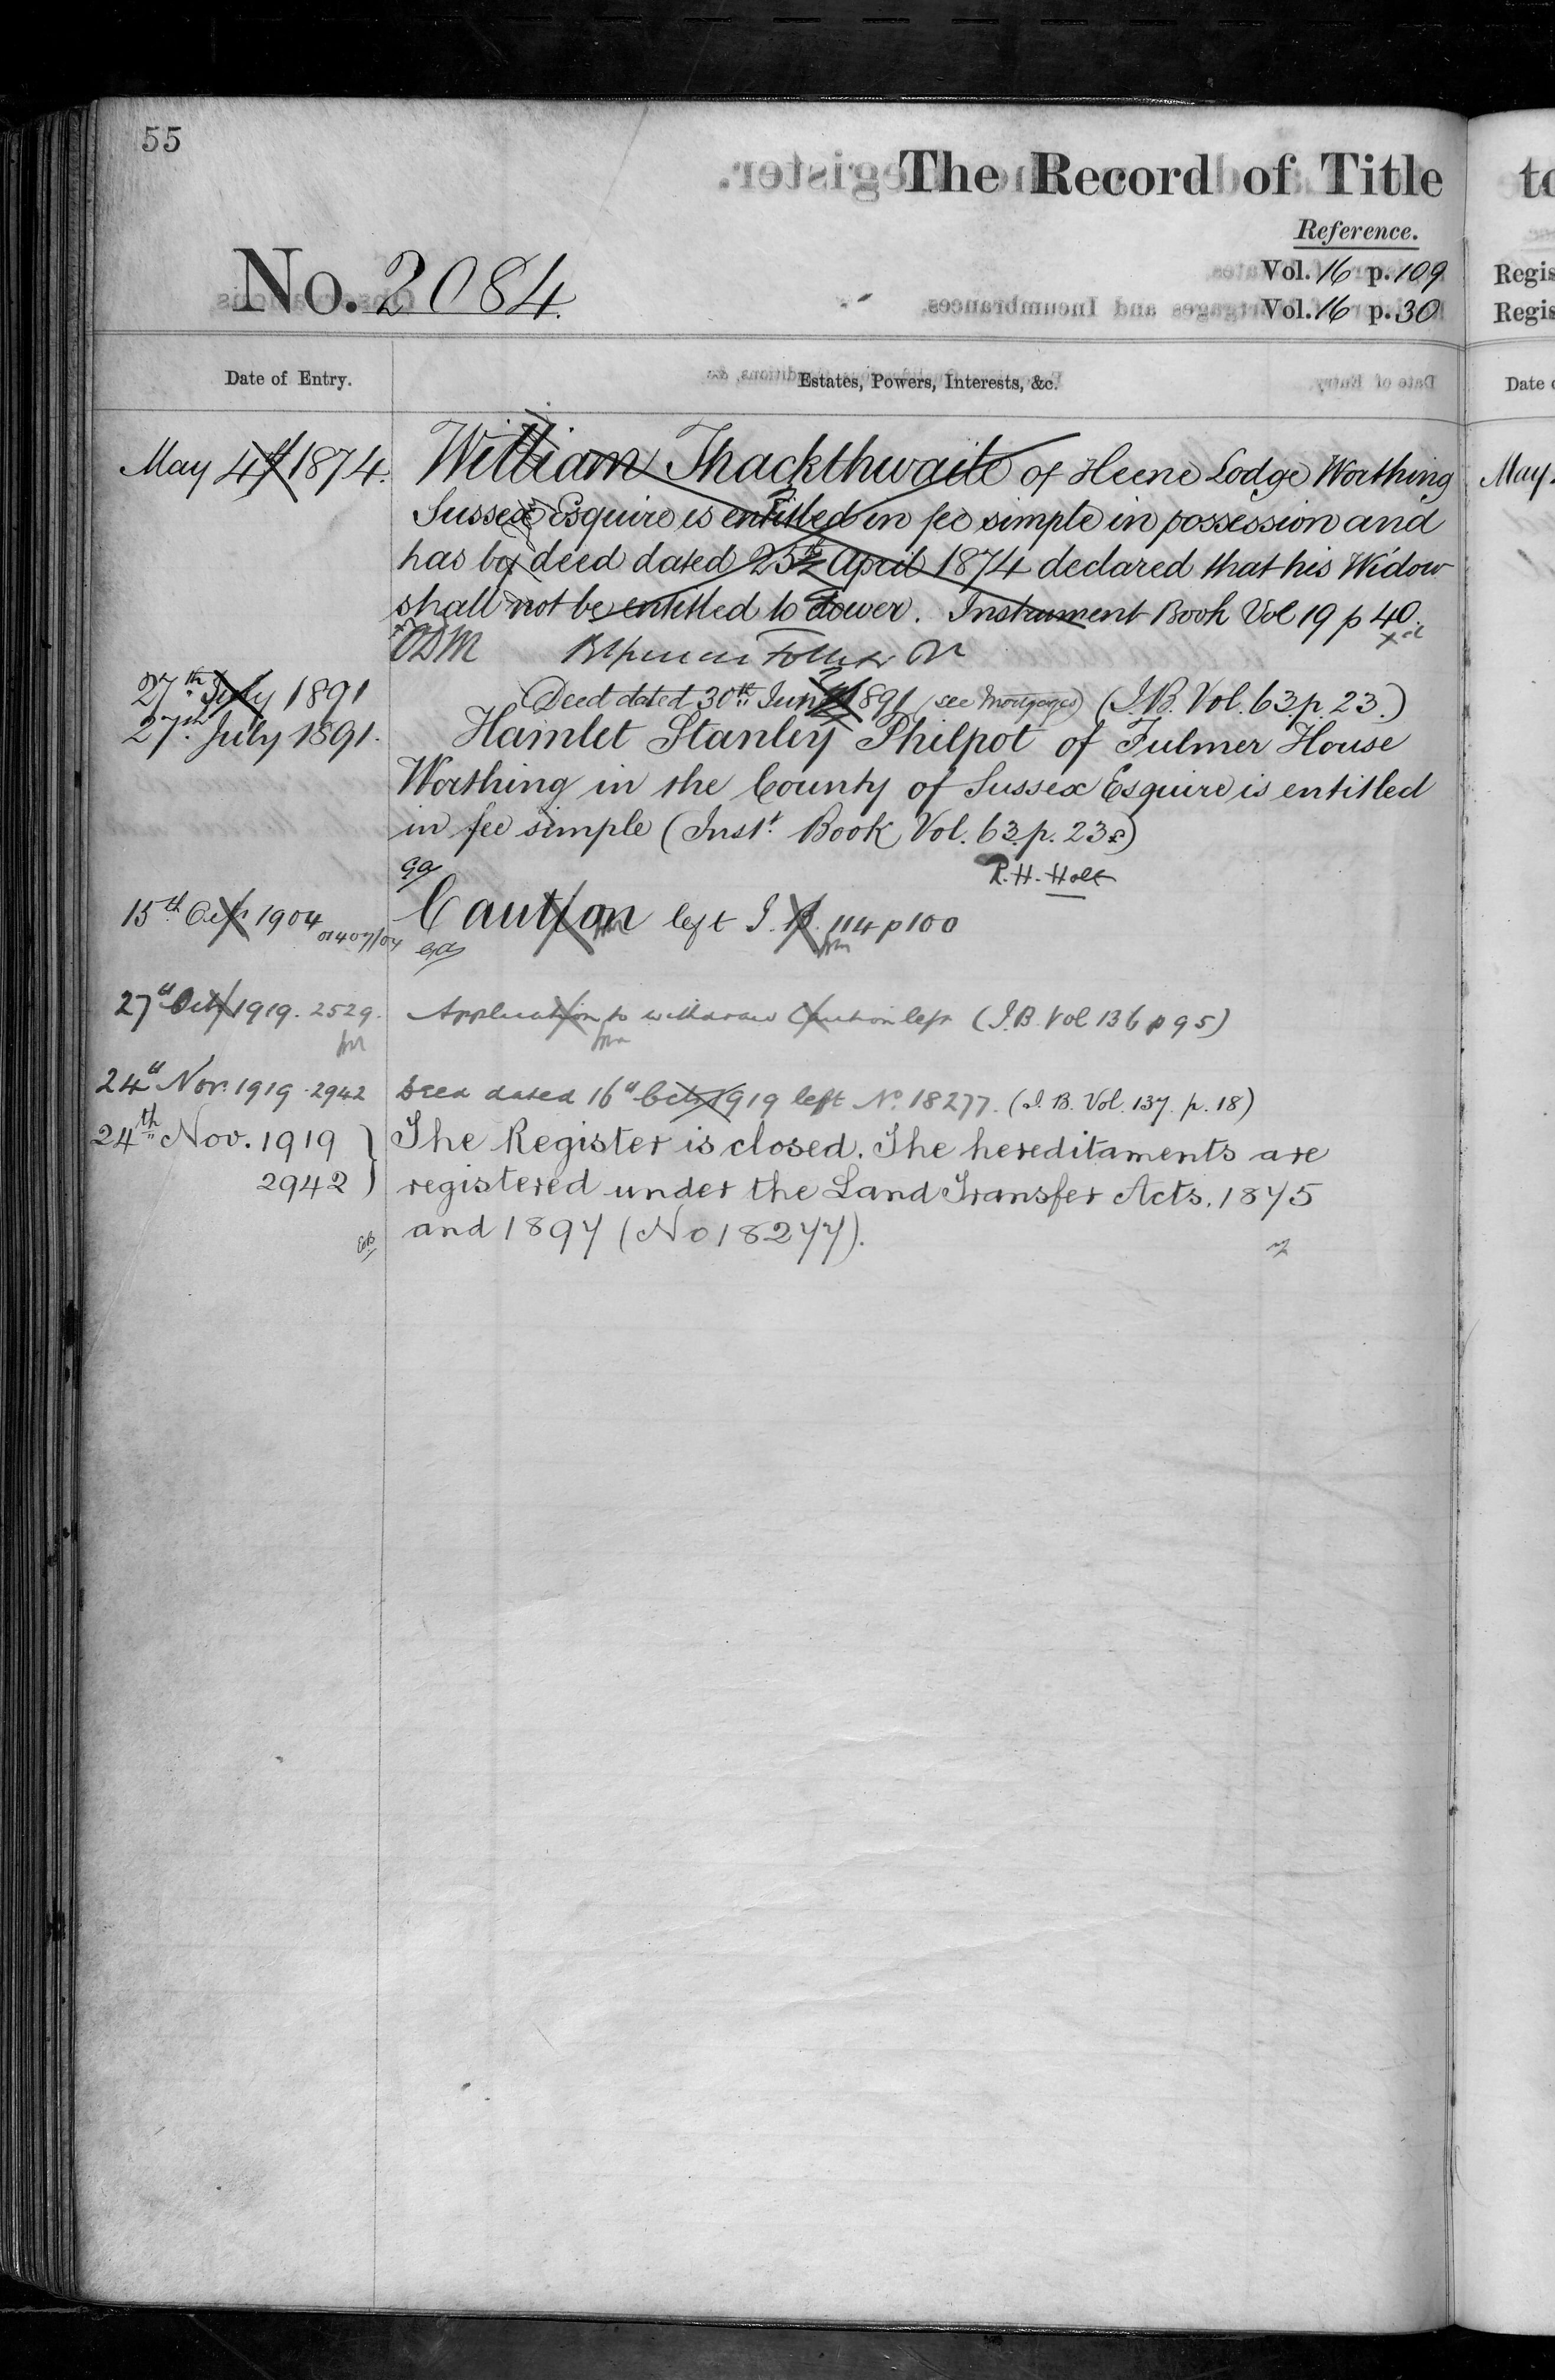 55
The Record of Title
Reference.
No. 2084.
Vol. 16 p. 109
Vol. 16 p. 30
Date of Entry.
Estates, Powers, Interests, &c.
May 4th 1874. William Thackthwaite of Heene Lodge Worthing
Sussex Esquire is entitled in fee simple in possession and
has by deed dated 25th April 1874 declared that his Widow
shall not be entitled to dower. Instrument Book Vol 19 p 40.
27th July 1891 Deed dated 30th June 1891 (see Mortgages) (I.B. Vol. 63 p. 23.)
27th July 1891. Hamlet Stanley Philpot of Fulmer House
Worthing in the County of Sussex Esquire is entitled
in fee simple (Inst. Book Vol. 63. p. 23.)
R. H. Holt
15th Oct 1904 01407/04 Caution left I.B. 114 p 100
27th Oct 1919. 2529. Application to withdraw Caution left (I.B. Vol 136 p 95)
24th Nov. 1919 2942 Deed dated 16th Oct. 1919 left No. 18277. (I.B. Vol. 137. p. 18)
24th Nov. 1919 The Register is closed. The hereditaments are
2942 registered under the Land Transfer Acts. 1875
and 1897 (No 18277).
to
Regis
Regis
Date
May